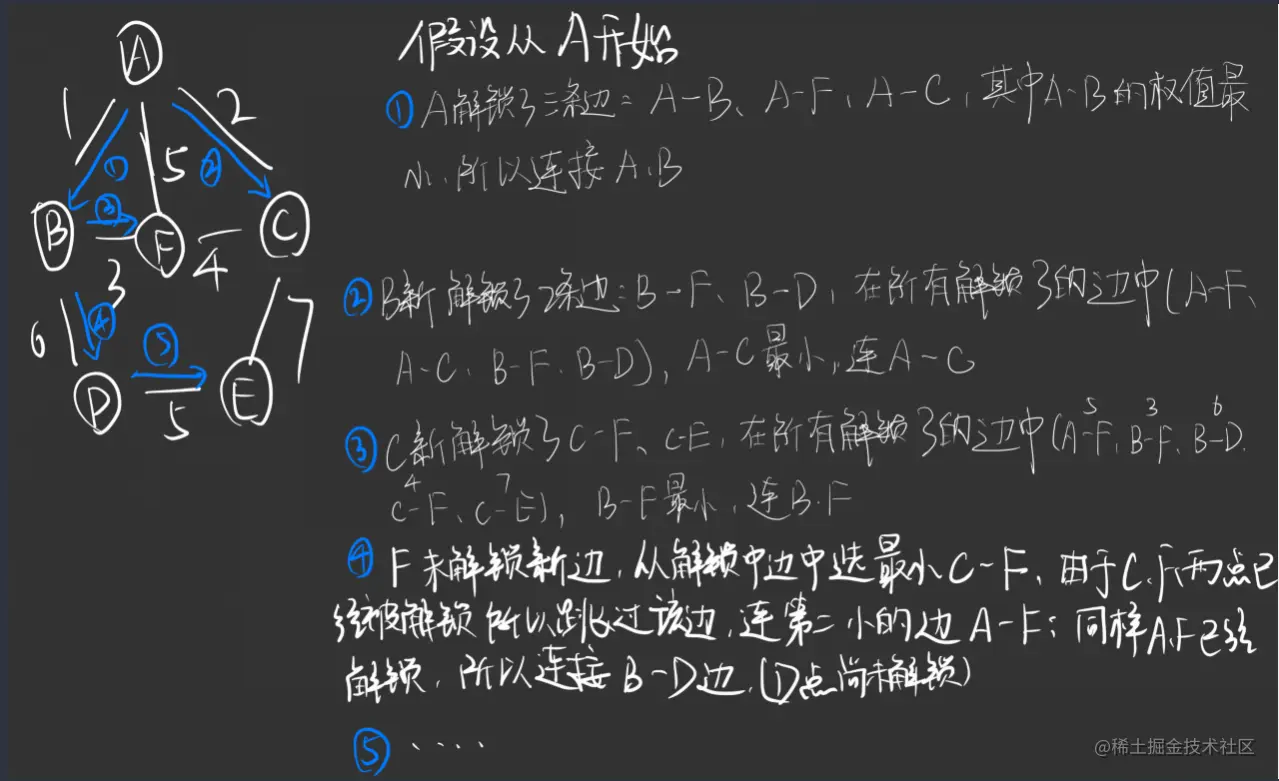 假设从A开始
① A解锁了三条边：A-B、A-F、A-C，其中A-B的权值最
小，所以连接A.B
② B新解锁了2条边：B-F、B-D，在所有解锁了的边中(A-F、
A-C、B-F、B-D)，A-C最小，连A-C
③ C新解锁了C-F、C-E，在所有解锁了的边中(A-F、B-F、B-D
5 3 6
C-F、C-E)，B-F最小，连B.F
4 7
④ F未解锁新边，从解锁中边中选最小C-F、由于C.F、两点已
经被解锁所以跳过该边，连第二小的边A-F；同样A.F已经
解锁，所以连接B-D边.(D点尚未解锁)
⑤ ....
A
1 5 2
① ②
B ③ F C
3 4
6 ④ ⑤ 7
D E
5
@稀土掘金技术社区